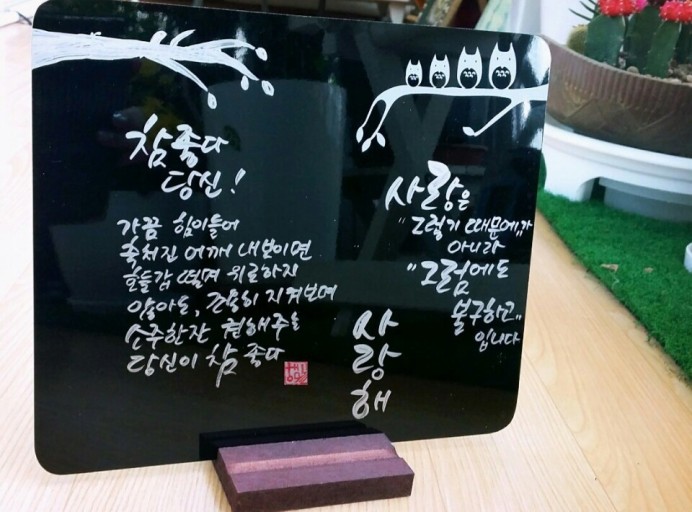 참 좋다
당신!
가끔 힘이들어
축쳐진 어깨 내보이면
호들갑 떨며 위로하지
않아도, 조용히 지켜보며
소주한잔 권해주는
당신이 참 좋다
사랑은
"그렇기 때문에"가
아니라
"그럼에도
불구하고"
입니다
사
랑
해